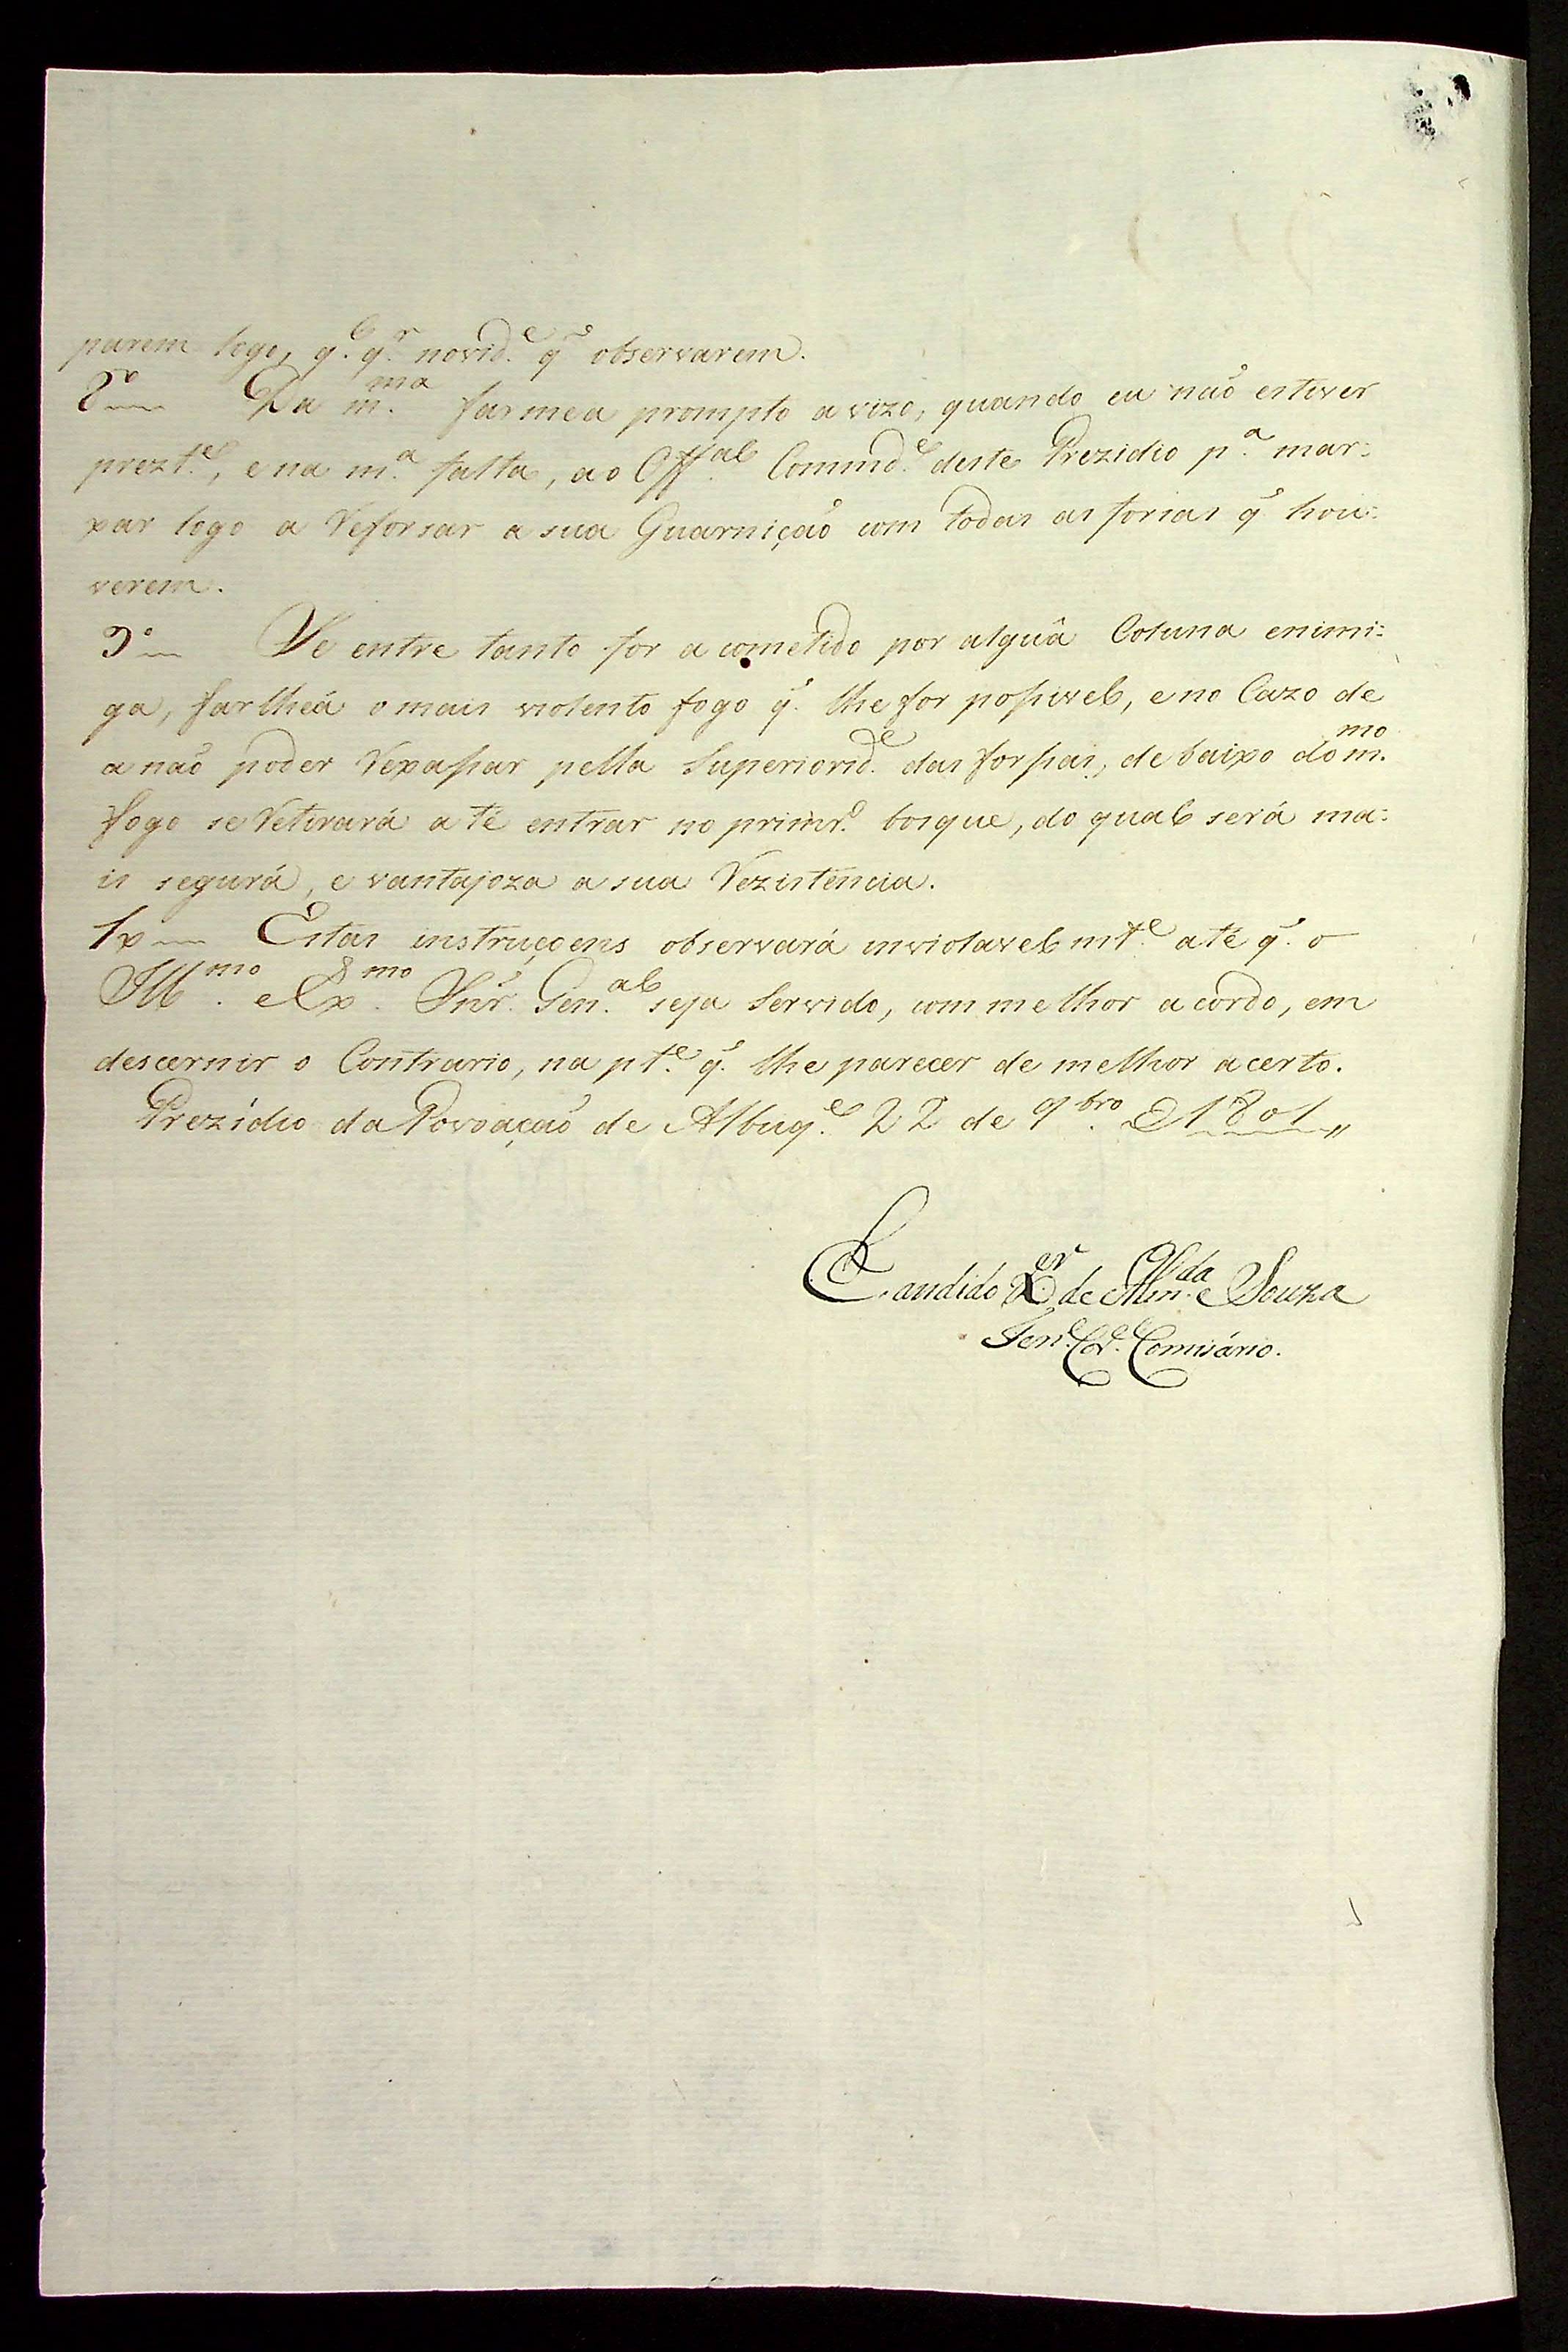 parem logo, q.^l q.^r novid.^e q̃ observarem.
8º Da m.^ma farmea prompto avizo, quando eu naõ estiver
prezt.^e, e na m.^a falta, ao Off.^al Commd.^e deste Prezidio p.^a mar=
xar logo a Reforsar a sua Guarniçaõ com todas as forsas q̃ hou=
verem.
9º Se entre tanto for acometido por alguã Coluna enimi=
ga, farlheá o mais violento fogo q̃. lhe for posivel, e no Cazo de
a naõ poder Rexasar pella Superiorid.^e das forsas, debaixo do m.^mo
fogo se Retirará até entrar no primr.º bosque, do qual será ma=
is segurá, e vantajoza a sua Rezistencia.
10 Estas instruçoens observará inviolavelmt.^e até q̃. o
Ill.^mo e Ex.^mo Snr̃. Gen.^al seja Servido, com melhor acordo, em
descernir o Contrario, na pt.^e q̃. lhe parecer de melhor acerto.
Prezidio da Povoaçaõ de Albuq.^e 22 de 9.^bro de 1801,,
Candido X.^er de Alm.^da e Souza
Ten.^e Cor.^el Comisário.